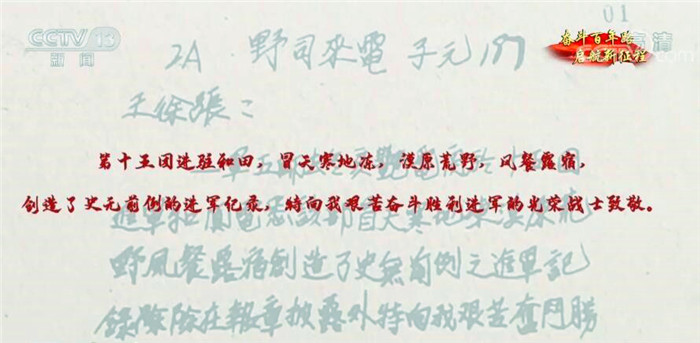 CCTV 13
新闻
01
奋斗百年路
启航新征程
高清
2A 野司来電 子元
王徐張：
第十五团进驻和田，冒天寒地冻，漠原荒野，风餐露宿，
创造了史无前例的进军纪录，特向我艰苦奋斗胜利进军的光荣战士致敬。
野風餐露宿創造了史無前例之進軍記
錄除险在報章披露外特向我艰苦奮鬥勝